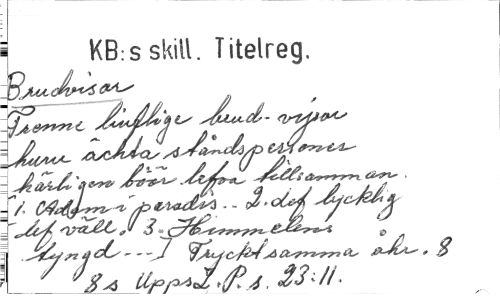 KB:s skill. Titelreg.
Brudvisor
Trenne liuflige brud-vijsor
huru ächta ståndspersoner
kärligen böör lefva tillsamman.
1. Adam i paradis.. 2. def lycklig
lef väll. 3. Himmelens
tyngd ---] Tryckt samma åhr. 8
8 s Upps L.P.s. 23:11.